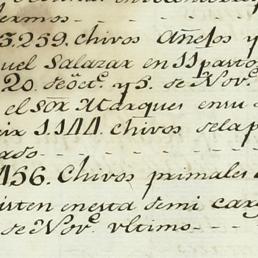 ermos
3.259. Chivos Añejos y
uel Salazar en 11 pasto
20. de Oct.ᵉ y 5. de Nov.ᵉ
el Sor Marques en su
1.144. chivos se la p
ado
456. Chivos primales
isten en esta semi car
de Nov.ᵉ vltimo